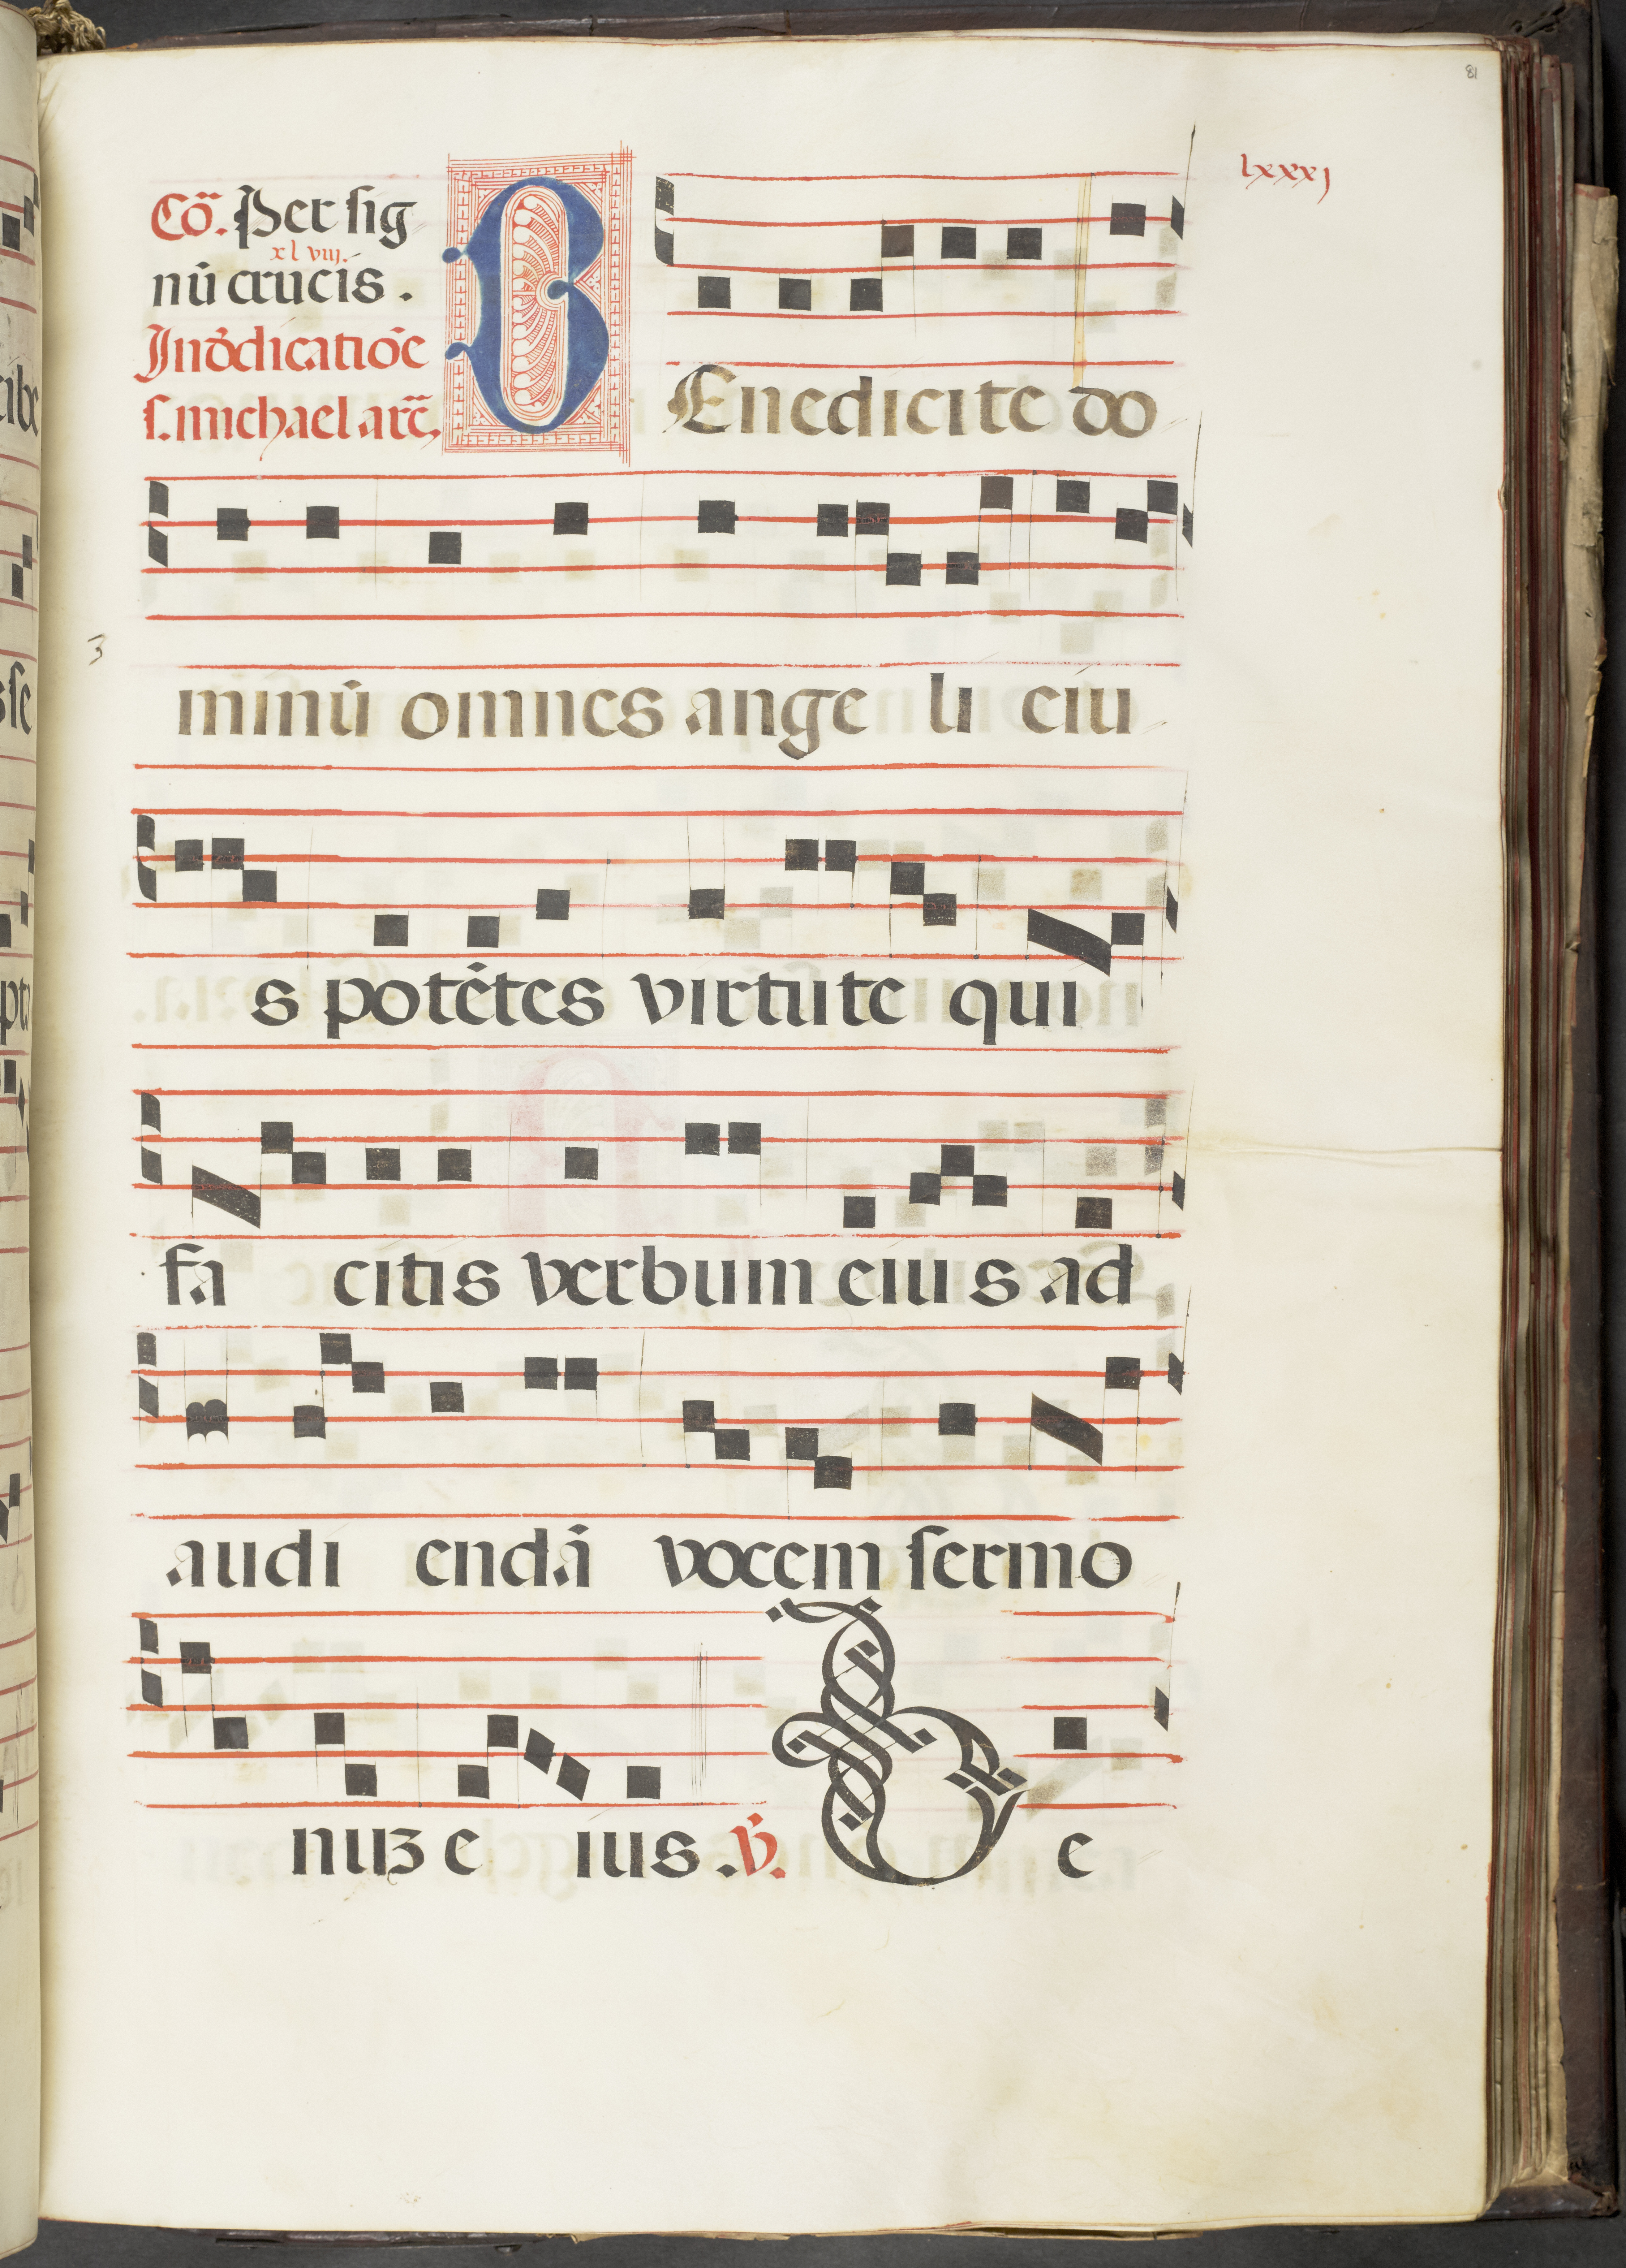 81
lxxxj
Cō. Per sig
xlviij.
nū crucis.
In dẽdicatiōe
s. michael arc̄.
BEnedicite do
3
minū omnes ange li eiu
s potētes virtute qui
fa citis verbum eius ad
audi endā vocem sermo
nuʒ e ius. ℣. B e